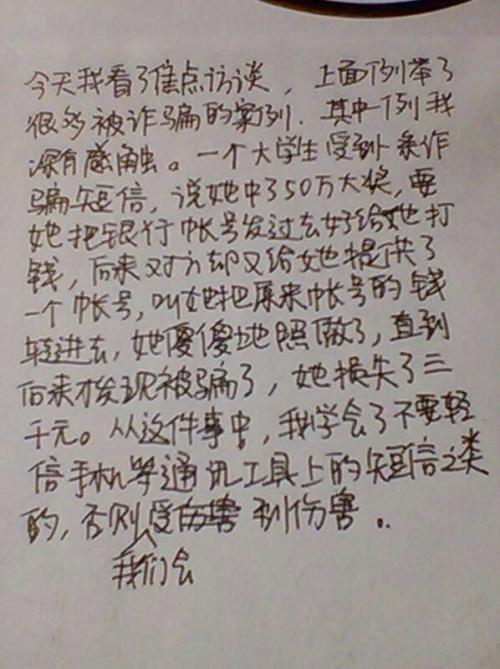 今天我看了焦点访谈，上面例举了
很多被诈骗的案例．其中一例我
深有感触。一个大学生受到一条诈
骗短信，说她中了50万大奖，要
她把银行帐号发过去好给她打
钱，后来对方却又给她提供了
一个帐号，叫她把原来帐号的钱
转进去，她傻傻地照做了，直到
后来才发现被骗了，她损失了三
千元。从这件事中，我学会了不要轻
信手机等通讯工具上的短信之类
的，否则受到伤害．．
我们会